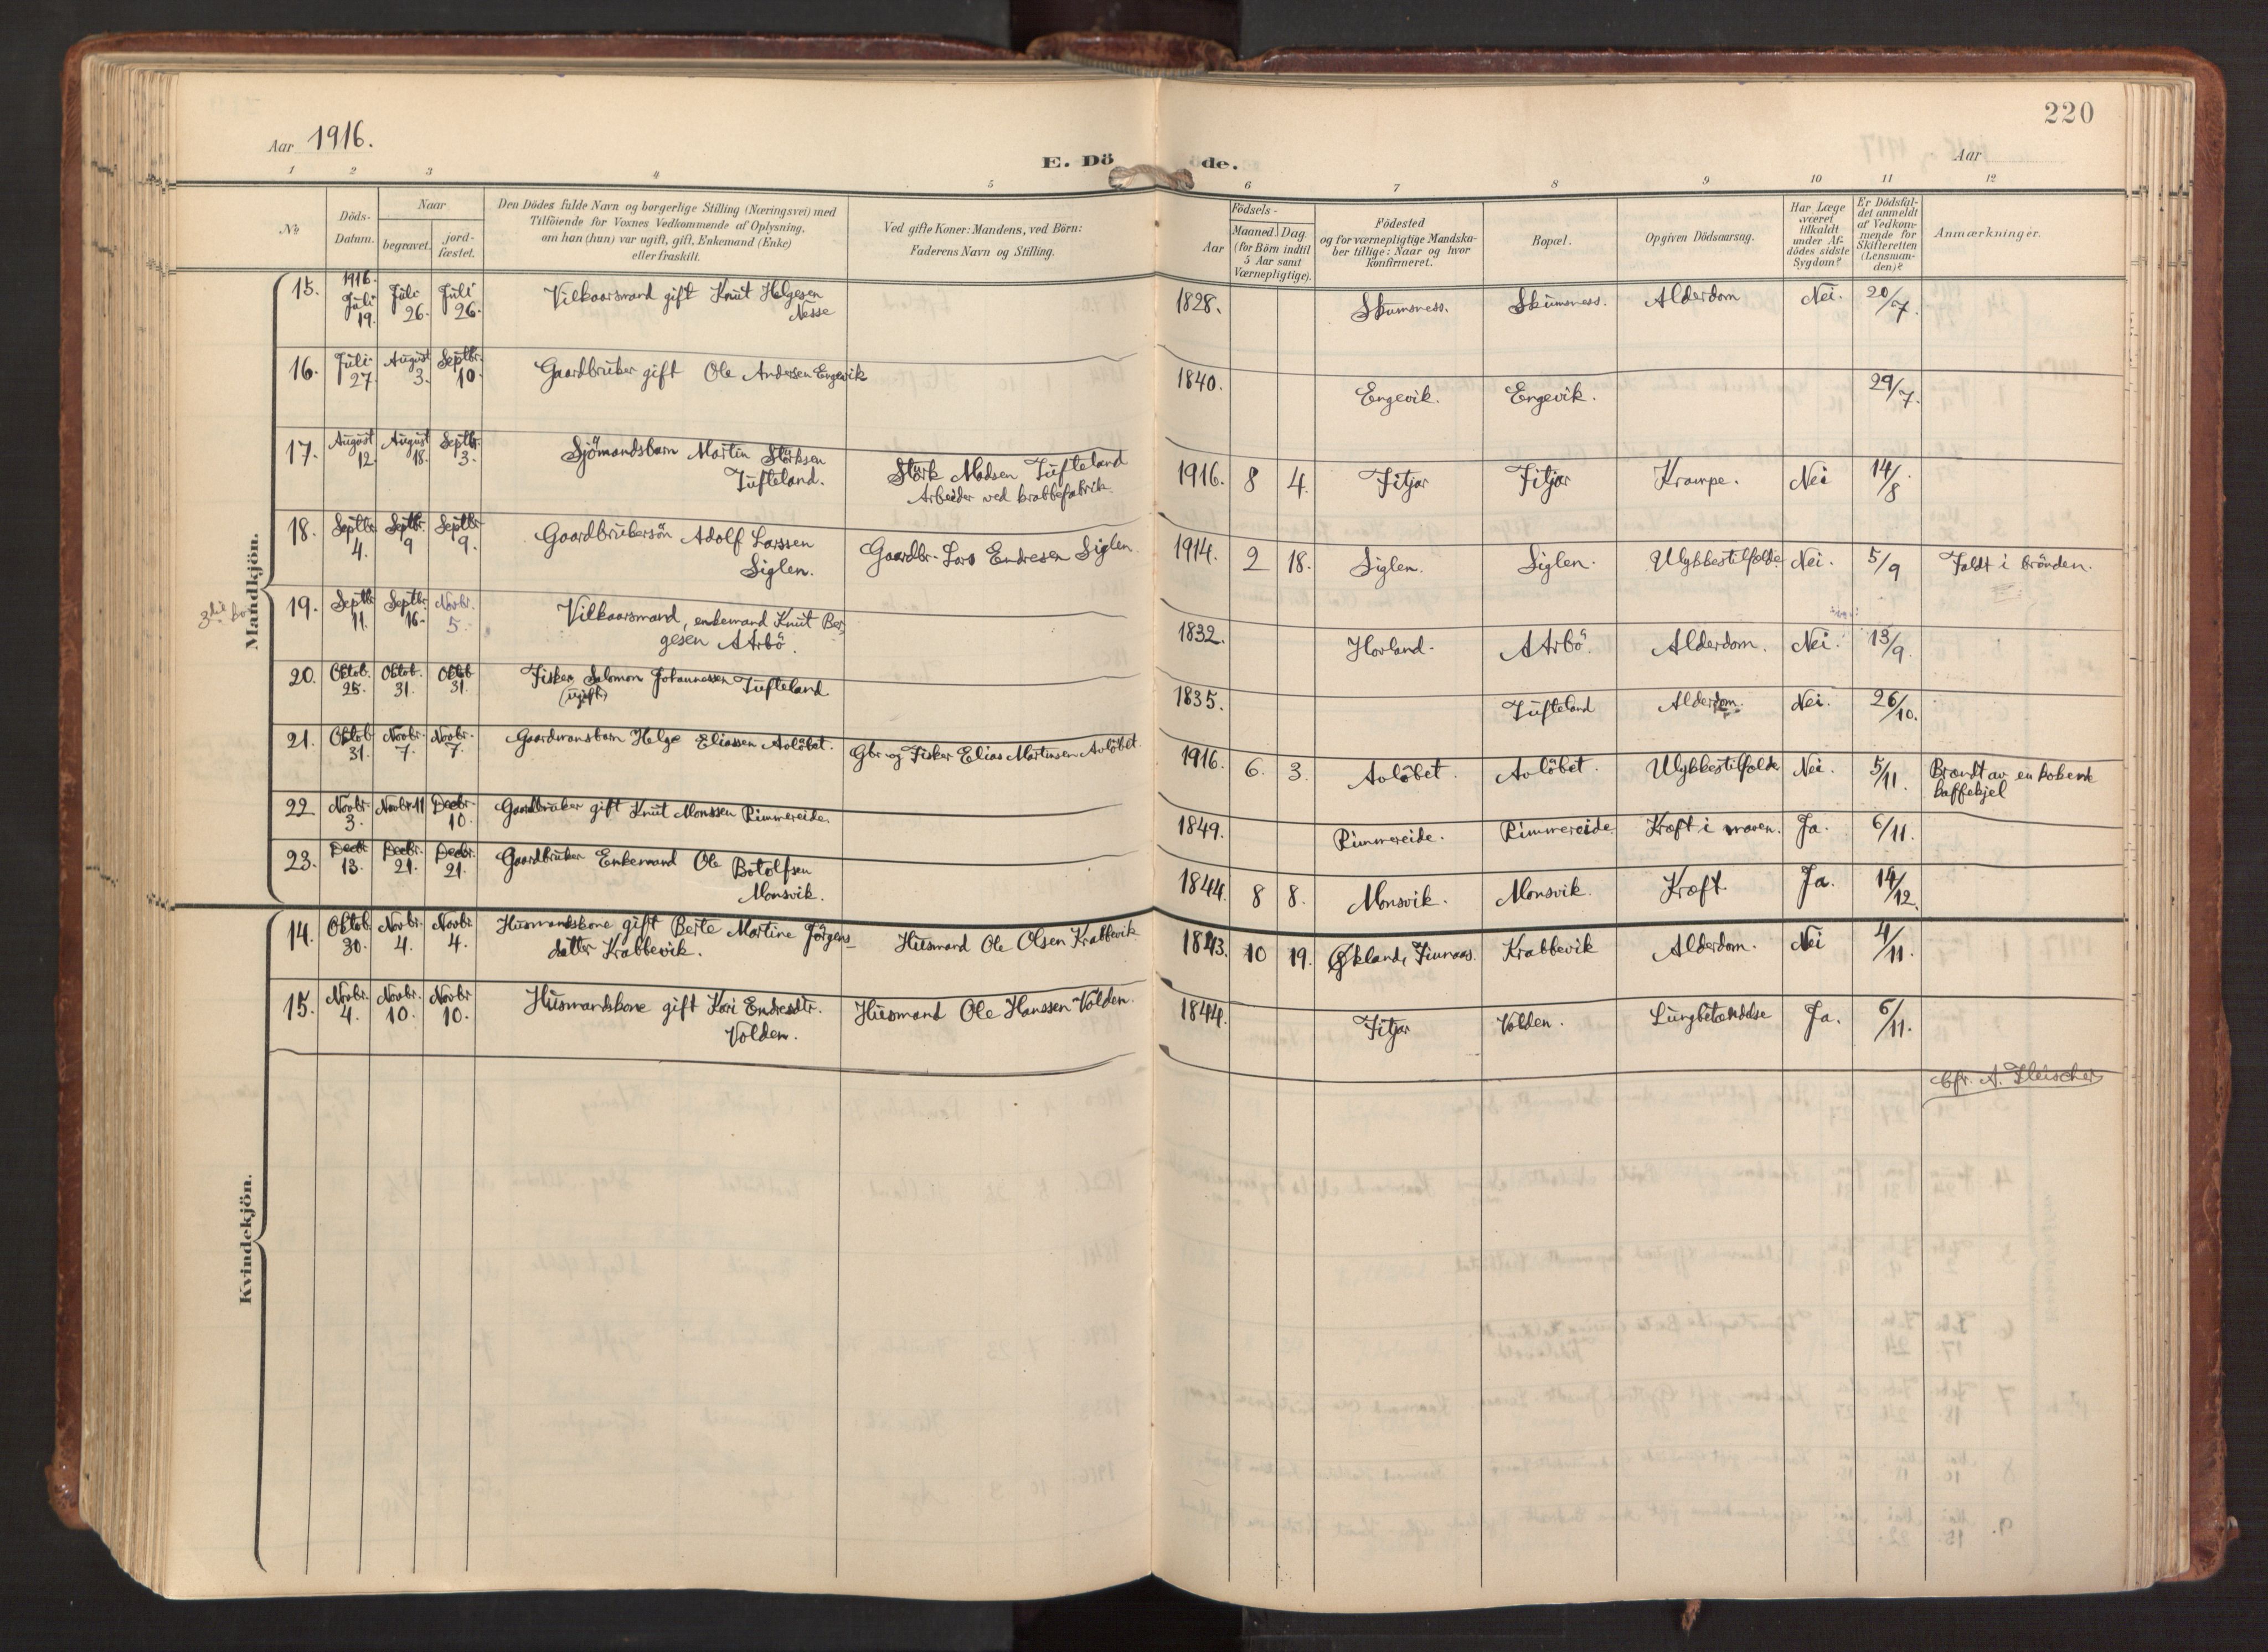 220
Aar 1916.
E. Döde.
Aar
1 2 3 4 5 6 7 8 9 10 11 12
No
Döds-
Datum.
Naar
begravet.
jord-
fæstet.
Den Dödes fulde Navn og borgerlige Stilling (Næringsvei) med
Tilföiende for Voxnes Vedkommende af Oplysning,
om han (hun) var ugift, gift, Enkemand (Enke)
eller fraskilt.
Ved gifte Koner: Mandens, ved Börn:
Faderens Navn og Stilling.
Födsels-
Aar
Maaned. Dag.
(for Börn indtil
5 Aar samt
Værnepligtige).
Födested
og for værnepligtige Mandska-
ber tillige: Naar og hvor
konfirmeret.
Bopæl.
Opgiven Dödsaarsag.
Har Læge
været
tilkaldt
under Af-
dödes sidste
Sygdom?
Er Dödsfal-
det anmeldt
af Vedkom-
mende for
Skifteretten
(Lensman-
den)?
Anmærkninger.
Mandkjön.
15. 1916. Juli 19. Juli 26. Juli 26. Vilkaarsmand gift Knut Helgesen 1828. Skumsness. Skumsness. Alderdom Nei. 20/7.
Nesse
16. Juli 27. August 3. Septbr. 10. Gaardbruker gift Ole Andersen Engevik 1840. Engevik. Engevik. 29/7.
17. August 12. August 18. Septbr. 3. Sjömandsbarn Martin Störksen Störk Madsen Tufteland 1916. 8 4. Fitjar Fitjar Krampe. Nei 14/8.
Tufteland. Arbeider ved krabbefabrik.
18. Septbr. 4. Septbr. 9 Septbr. 9. Gaardbrukersön Adolf Larssen Gaardbr. Lars Endresen Siglen. 1914. 2 18. Siglen. Siglen. Ulykkestilfælde Nei. 5/9 Faldt i brönden.
Siglen.
19. Septbr. 11. Septbr. 16. Novbr. 5. Vilkaarsmand, enkemand Knut Ber- 1832. Hovland. Aarbö. Alderdom. Nei. 13/9.
gesen Aarbö.
20. Oktob. 25. Oktob. 31. Oktob 31. Fisker Salomon Johannessen Tufteland 1835. Tufteland Alderdom. Nei. 26/10.
(ugift)
21. Oktob 31. Novbr. 7. Novbr. 7. Gaardmansbarn Helge Eliassen Avlöbet. Gbr. og Fisker Elias Martinsen Avlöbet. 1916. 6. 3. Avlöbet. Avlöbet. Ulykkestilfælde Nei. 5/11. Brændt av en kokende
kaffekjel
22 Novbr. 3. Novbr 11 Decbr. 10. Gaardbruker gift Knut Monssen Rimmereide. 1849. Rimmereide. Rimmereide. Kræft i maven. Ja. 6/11.
23. Decbr 13. Decbr. 21. Decbr. 21. Gaardbruker Enkemand Ole Botolfsen 1844. 8 8. Monsvik. Monsvik. Kræft. Ja. 14/12.
Monsvik.
Kvindekjön.
14. Oktob. 30. Novbr. 4. Novbr. 4. Husmandskone gift Berte Martine Jörgens- Husmand Ole Olsen Krabbevik 1843. 10 19. Økland, Finnaas. Krabbevik Alderdom. Nei 4/11.
datter Krabbevik.
15. Novbr. 4. Novbr. 10. Novbr. 10. Husmandskone gift Kari Endresdtr. Husmand Ole Hanssen Volden. 1844. Fitjar Volden. Lungbetændelse Ja. 6/11.
Volden.
Cfr. A. Fleischer